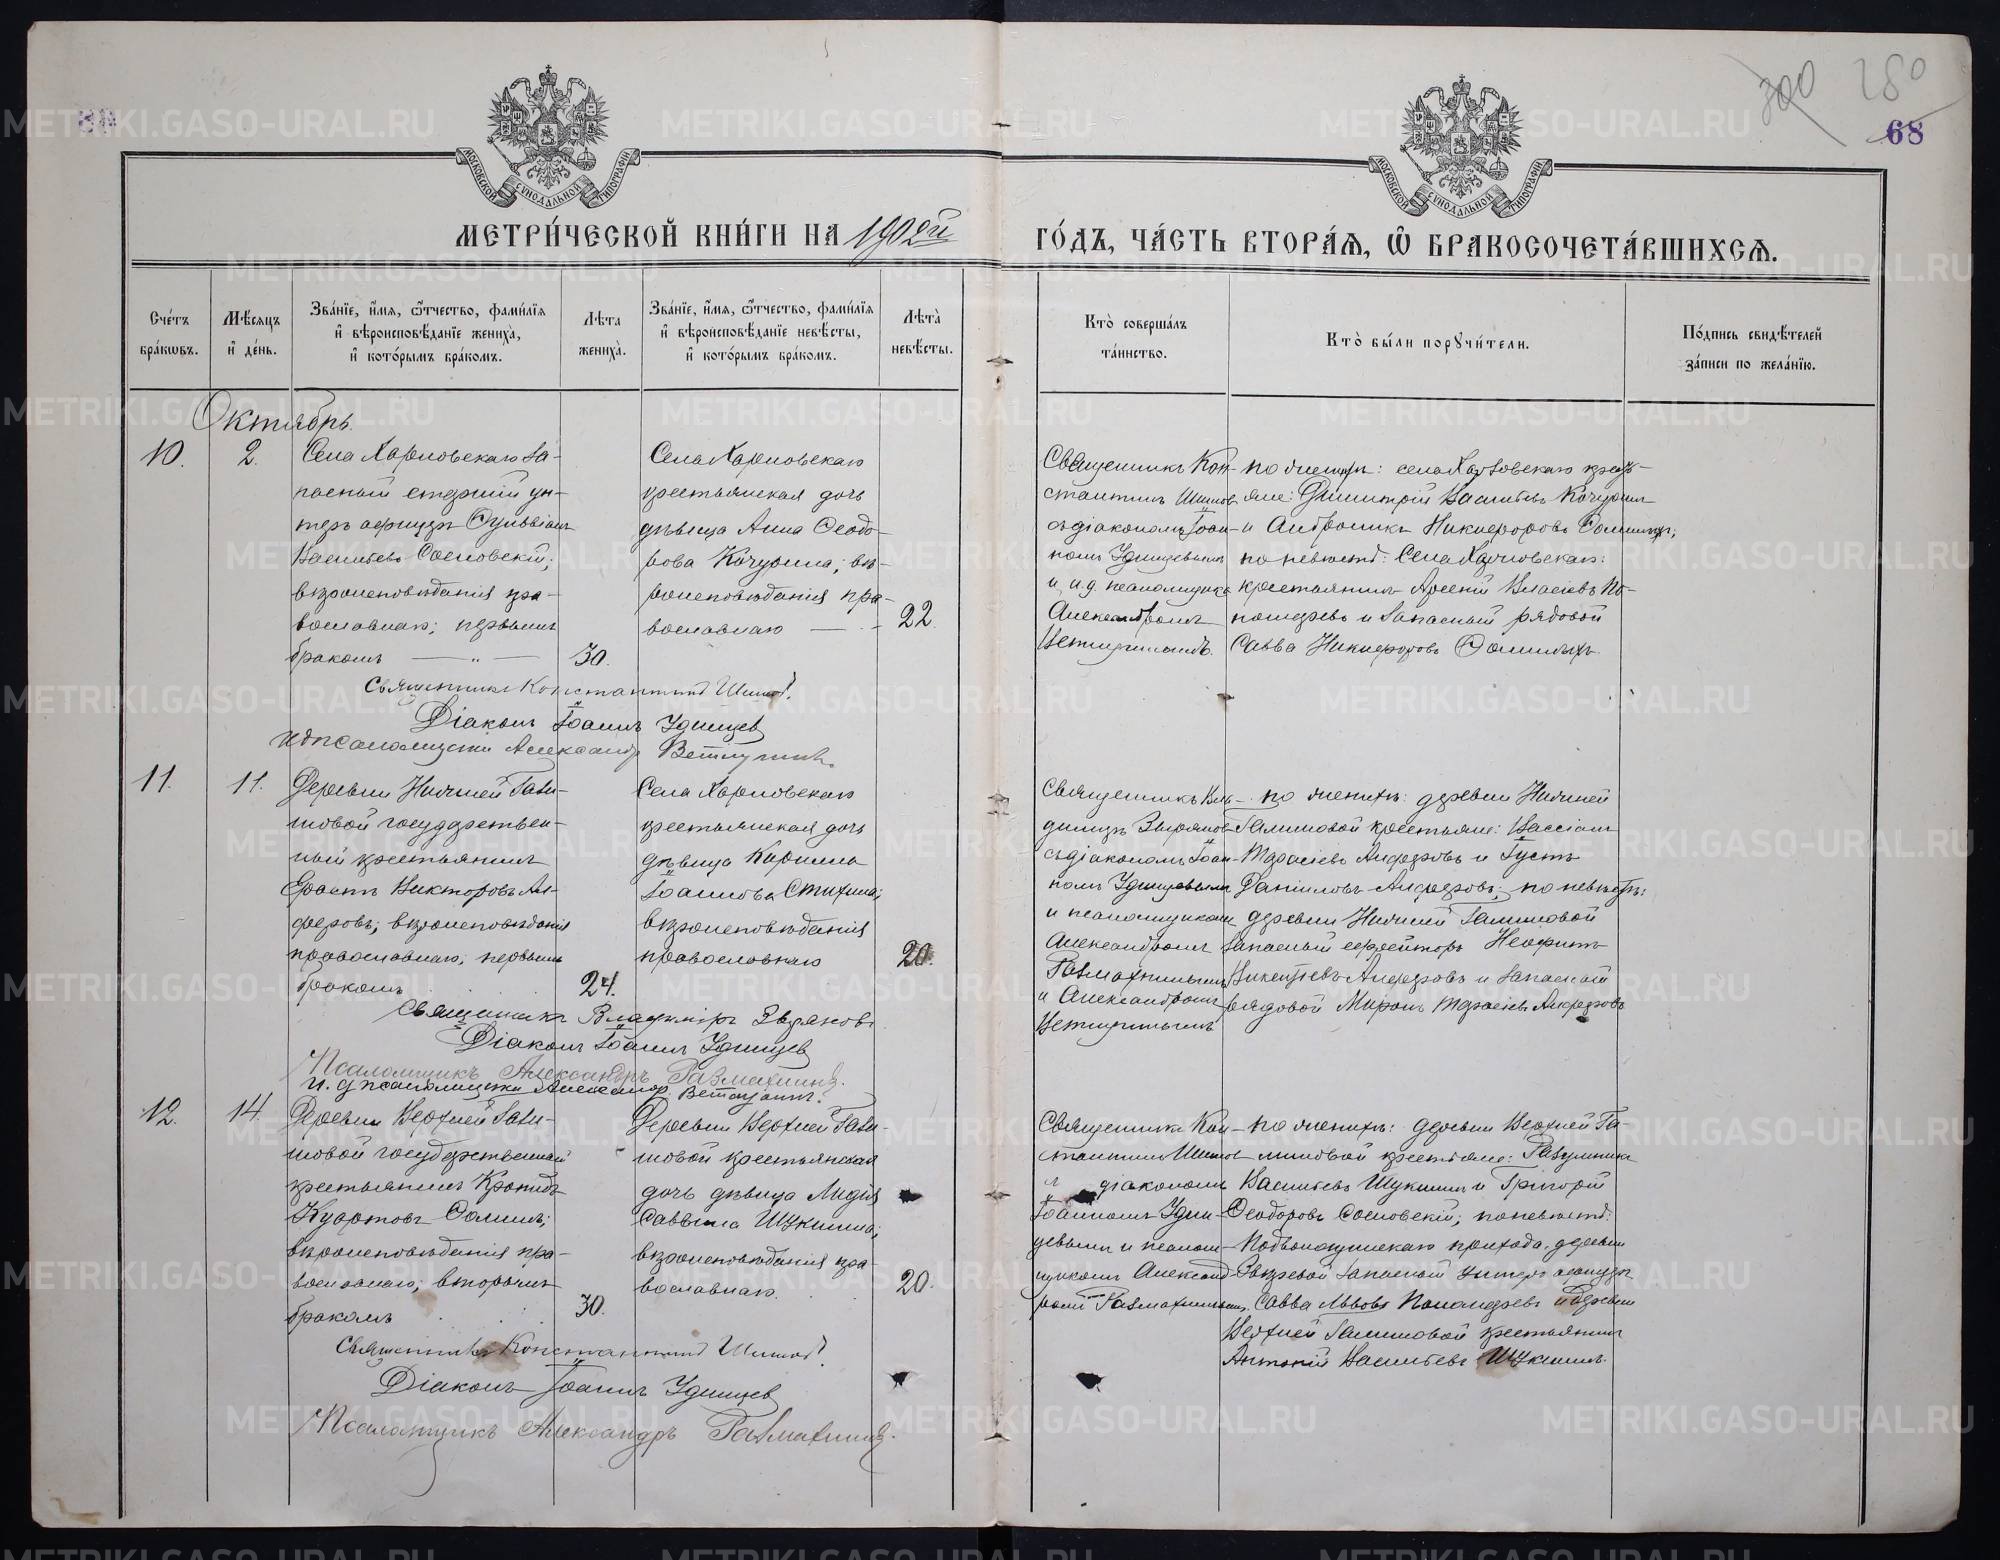 300 280
68
МОСКОВСКОЙ СѴНОДАЛЬНОЙ ТИПОГРАФІИ
МОСКОВСКОЙ СѴНОДАЛЬНОЙ ТИПОГРАФІИ
МЕТРИ́ЧЕСКОЙ КНИ́ГИ НА 1902й
ГО́ДЪ, ЧА́СТЬ ВТОРА́Ѧ, Ѽ БРАКОСОЧЕТА́ВШИХСѦ.
Сче́тъ бра́кѡвъ.
Мѣ́сѧцъ и҆ де́нь.
Зва́нїе, и҆́мѧ, ѻ҆́тчество, фами́лїѧ и҆ вѣроисповѣ́данїе жениха̀, и҆ кото́рымъ бра́комъ.
Лѣ́та жениха̀.
Зва́нїе, и҆́мѧ, ѻ҆́тчество, фами́лїѧ и҆ вѣроисповѣ́данїе невѣ́сты, и҆ кото́рымъ бра́комъ.
Лѣ́та невѣ́сты.
Кто̀ соверша́лъ та́инство.
Кто̀ бы́ли порꙋчи́тели.
По́дпись свидѣ́телей за́писи по жела́нїю.
Октябрь.
10.
2.
Села Харловскаго за-
пасный старшій ун-
теръ офицеръ
Васильевъ Сосновскій;
вѣроисповѣданія пра-
вославнаго; первымъ
бракомъ
30.
Села Харловскаго
крестьянская дочь
дѣвица Анна Ѳеодо-
рова Кочурина; вѣ-
роисповѣданія пра-
вославнаго
22.
Священникъ Кон-
стантинъ Шишов
съ діакономъ Іоан-
номъ Удинцевымъ
и и.д. псаломщика
Александромъ
по женихѣ: села Харловскаго кресть-
яне: Димитрій Васильевъ Кочуринъ
и Андроникъ Никифоровъ
по невѣстѣ: Села Харловскаго:
крестьянинъ Арсеній Власіевъ По-
номаревъ и запасный рядовой
Савва Никифоровъ
Священникъ Константинъ Шишов.
Діаконъ Іоаннъ Удинцев
И д псаломщика Александр
11.
11.
Деревни Нижней Гали-
шовой государствен-
ный крестьянинъ
Ерастъ Викторовъ Ал-
феровъ; вѣроисповѣданія
православнаго, первымъ
бракомъ
24.
Села Харловскаго
крестьянская дочь
дѣвица
Іоаннова Стихина;
вѣроисповѣданія
православнаго
20.
Священникъ Вла-
димиръ Звѣревъ
съ діакономъ Іоан-
номъ Удинцевымъ
и псаломщиками
Александромъ
и Александромъ
по женихѣ: деревни Нижней
Галишовой крестьяне: Вассіанъ
Тарасіевъ Алферовъ и Іустъ
Даніиловъ Алферовъ; по невѣстѣ:
деревни Нижней Галишовой
запасный ефрейторъ Неофитъ
Викентіевъ Алферовъ и запасной
рядовой Миронъ Тарасіевъ Алферовъ
Священникъ Владиміръ
Діаконъ Іоаннъ Удинцев
Псаломщикъ Александръ
и. д псаломщика Александр
12.
14.
Деревни Верхней Гали-
шовой государственный
крестьянинъ Кронидъ
Куартовъ
вѣроисповѣданія пра-
вославнаго; вторымъ
бракомъ
30.
Деревни Верхней Гали-
шовой крестьянская
дочь дѣвица Лидія
Саввина Шукшина;
вѣроисповѣданія пра-
вославнаго.
20.
Священникъ Кон-
стантинъ Шишов
діакономъ
Іоанномъ Удин-
цевымъ и псалом-
щикомъ Александ-
ромъ
по женихѣ: деревни Верхней Га-
лишовой крестьяне:
Васильевъ Шукшинъ и Григорій
Ѳеодоровъ Сосновскій; по невѣстѣ:
прихода, деревни
запасной унтеръ офицеръ
Савва Львовъ и деревни
Верхней Галишовой крестьянинъ
Антоній Васильевъ Шукшинъ.
Священникъ Константинъ Шишов.
Діаконъ Іоаннъ Удинцев
Псаломщикъ Александръ
METRIKI.GASO-URAL.RU